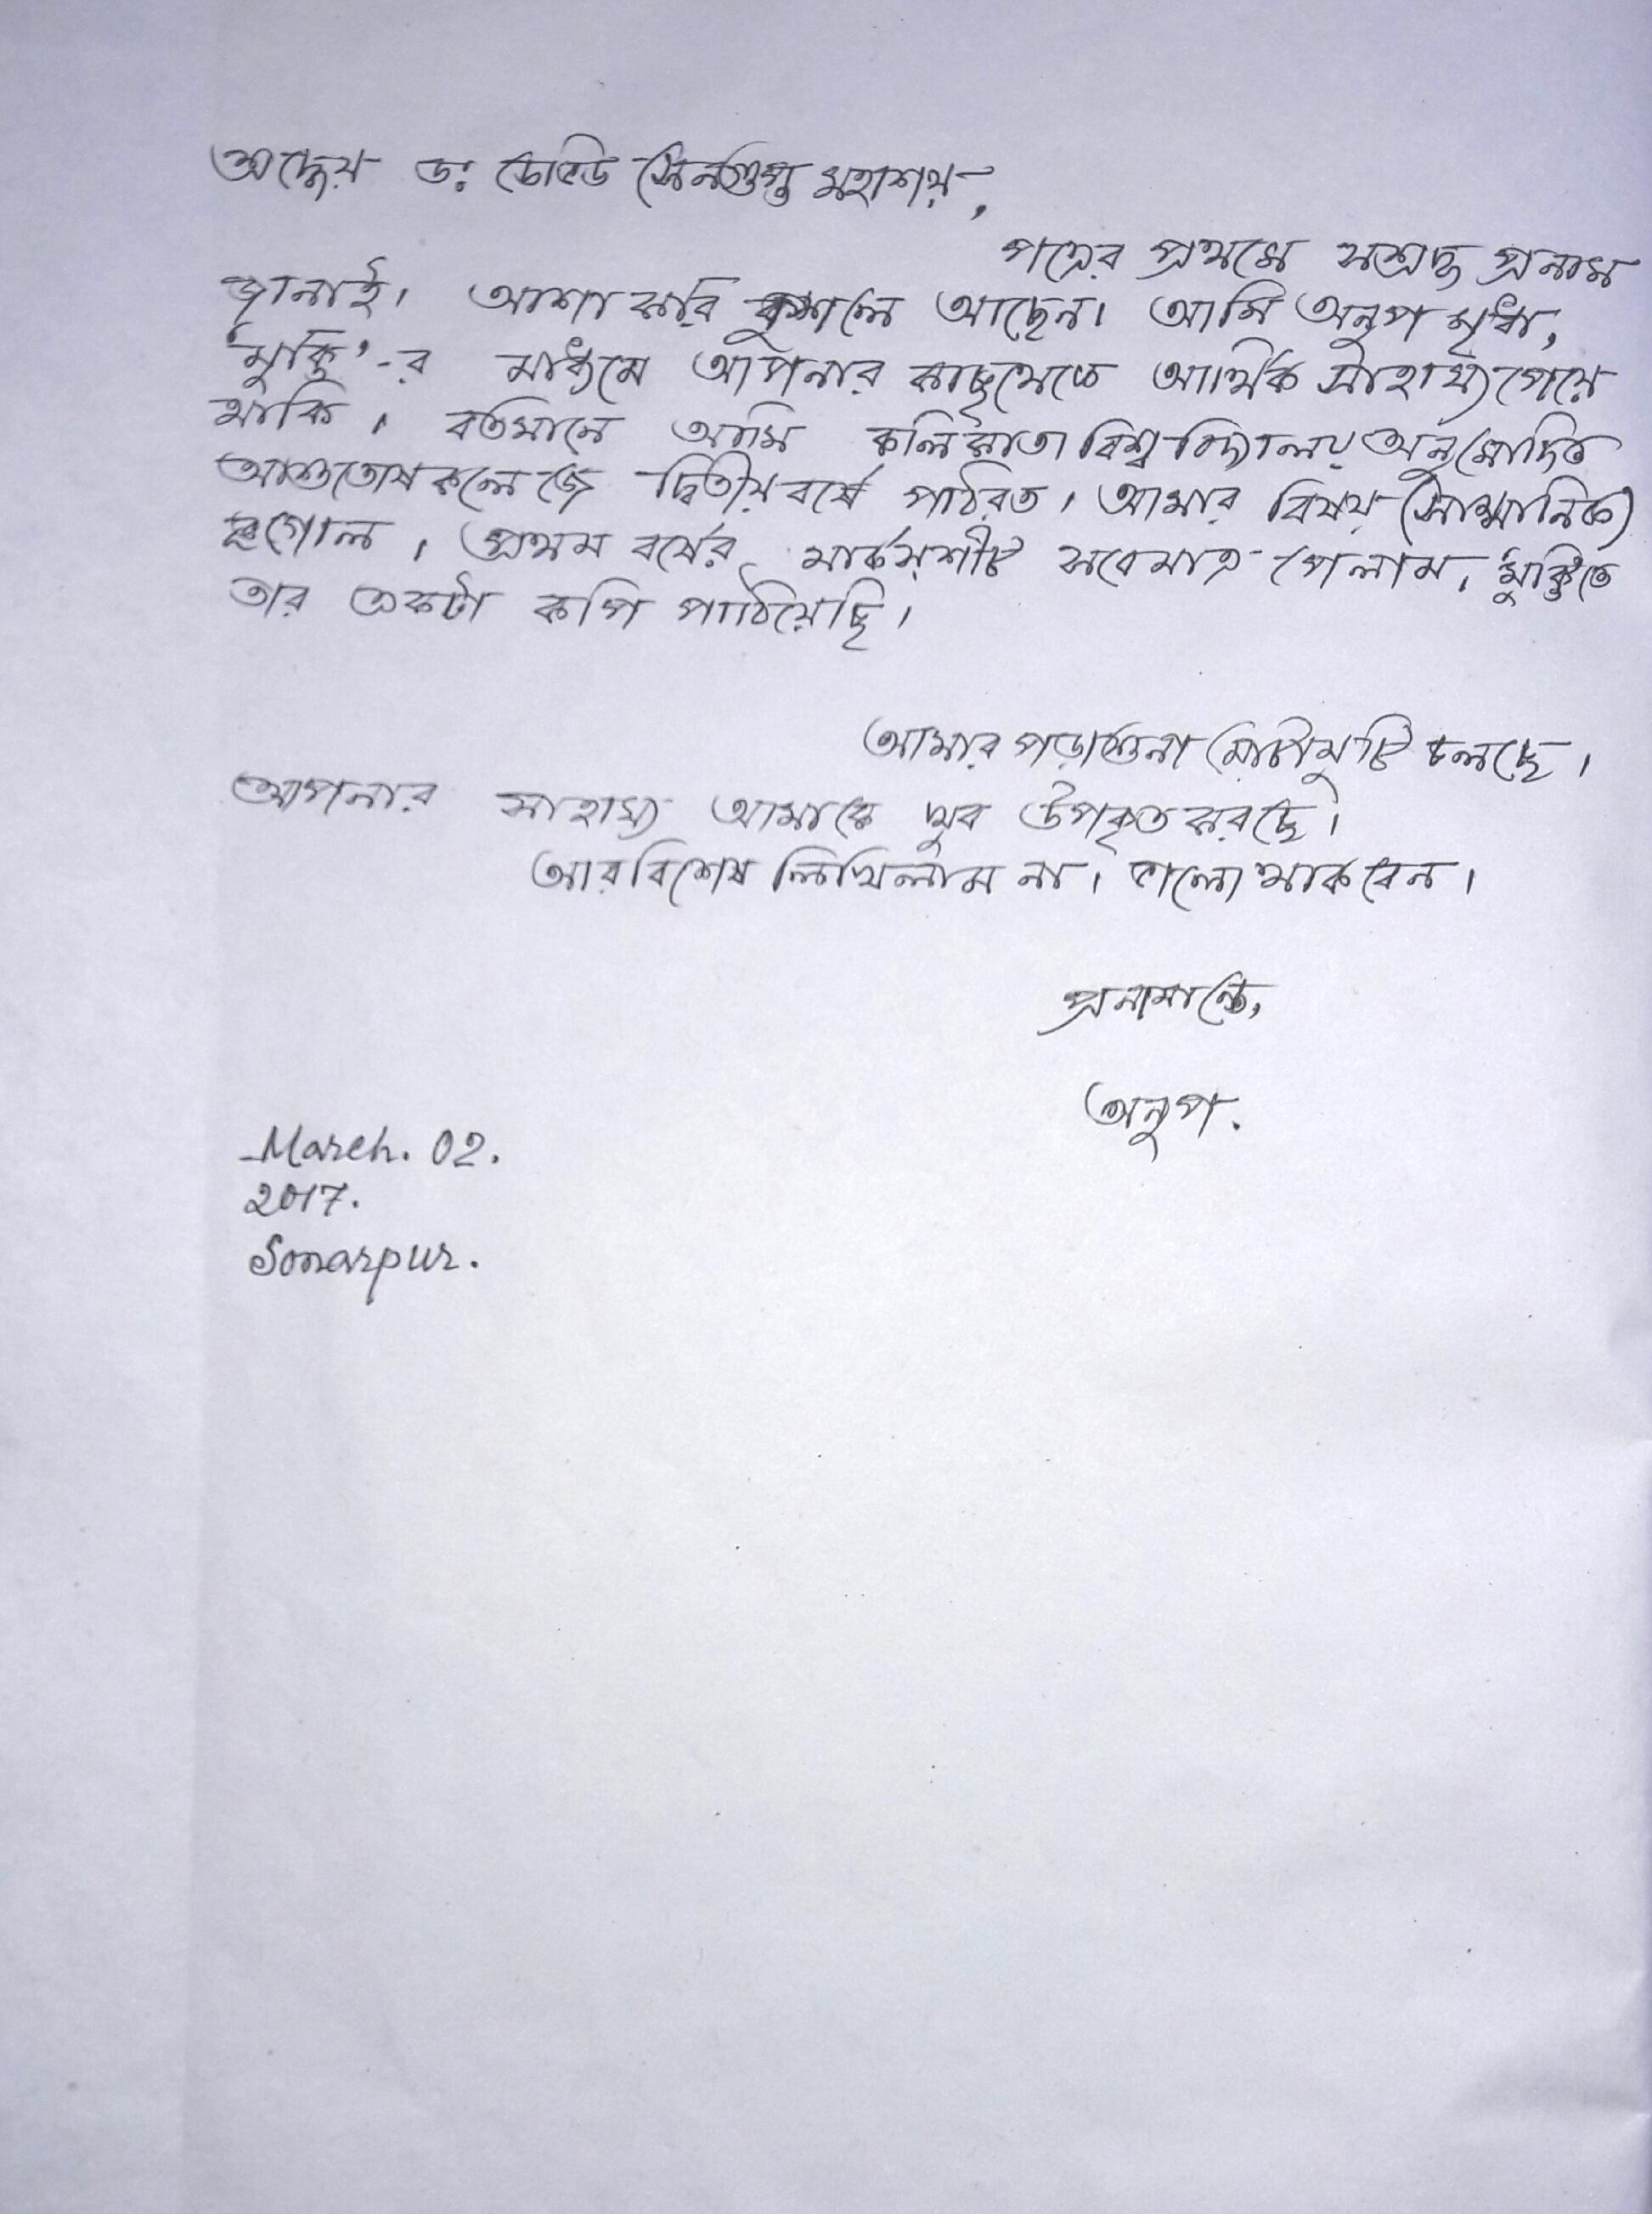 শ্রদ্ধেয় ডঃ ডেভিড সেনগুপ্ত মহাশয়,
পত্রের প্রথমে সশ্রদ্ধ প্রনাম
জানাই। আশা করি কুশলে আছেন। আমি অনুপ মৃধা,
'মুক্তি'-র মাধ্যমে আপনার কাছথেকে আর্থিক সাহায্য পেয়ে
থাকি। বর্তমানে আমি কলিকাতা বিশ্ববিদ্যালয় অনুমোদিত
আশুতোষ কলেজে দ্বিতীয় বর্ষে পাঠরত। আমার বিষয় (সাম্মানিক)
ভূগোল। প্রথম বর্ষের মার্কসশীট সবেমাত্র পেলাম। মুক্তিতে
তার একটা কপি পাঠিয়েছি।
আমার পড়াশুনা মোটামুটি চলছে।
আপনার সাহায্য আমাকে খুব উপকৃত করছে।
আর বিশেষ লিখিলাম না। ভালো থাকবেন।
প্রনামান্তে,
অনুপ.
March. 02.
2017.
Sonarpur.